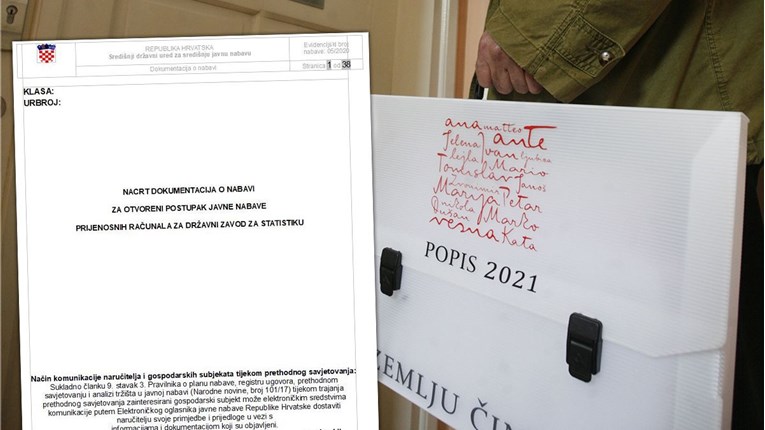 REPUBLIKA HRVATSKA
Središnji državni ured za središnju javnu nabavu
Dokumentacija o nabavi
Evidencijski broj
nabave: 05/2020
Stranica 1 od 38
KLASA:
URBROJ:
NACRT DOKUMENTACIJA O NABAVI
ZA OTVORENI POSTUPAK JAVNE NABAVE
PRIJENOSNIH RAČUNALA ZA DRŽAVNI ZAVOD ZA STATISTIKU
Način komunikacije naručitelja i gospodarskih subjekata tijekom prethodnog savjetovanja:
Sukladno članku 9. stavak 3. Pravilnika o planu nabave, registru ugovora, prethodnom
savjetovanju i analizi tržišta u javnoj nabavi (Narodne novine, broj 101/17) tijekom trajanja
prethodnog savjetovanja zainteresirani gospodarski subjekt može elektroničkim sredstvima
komunikacije putem Elektroničkog oglasnika javne nabave Republike Hrvatske dostaviti
naručitelju svoje primjedbe i prijedloge u vezi s
informacijama i dokumentacijom koji su objavljeni.
ana matteo ante
Jelena Ivan ljubica
lejla Mario
Tomislav Janoš
Zvonimir Petar
Marija
nikola Marko
Dušan
vesna Kata
POPIS 2021
ZEMLJU ČIN